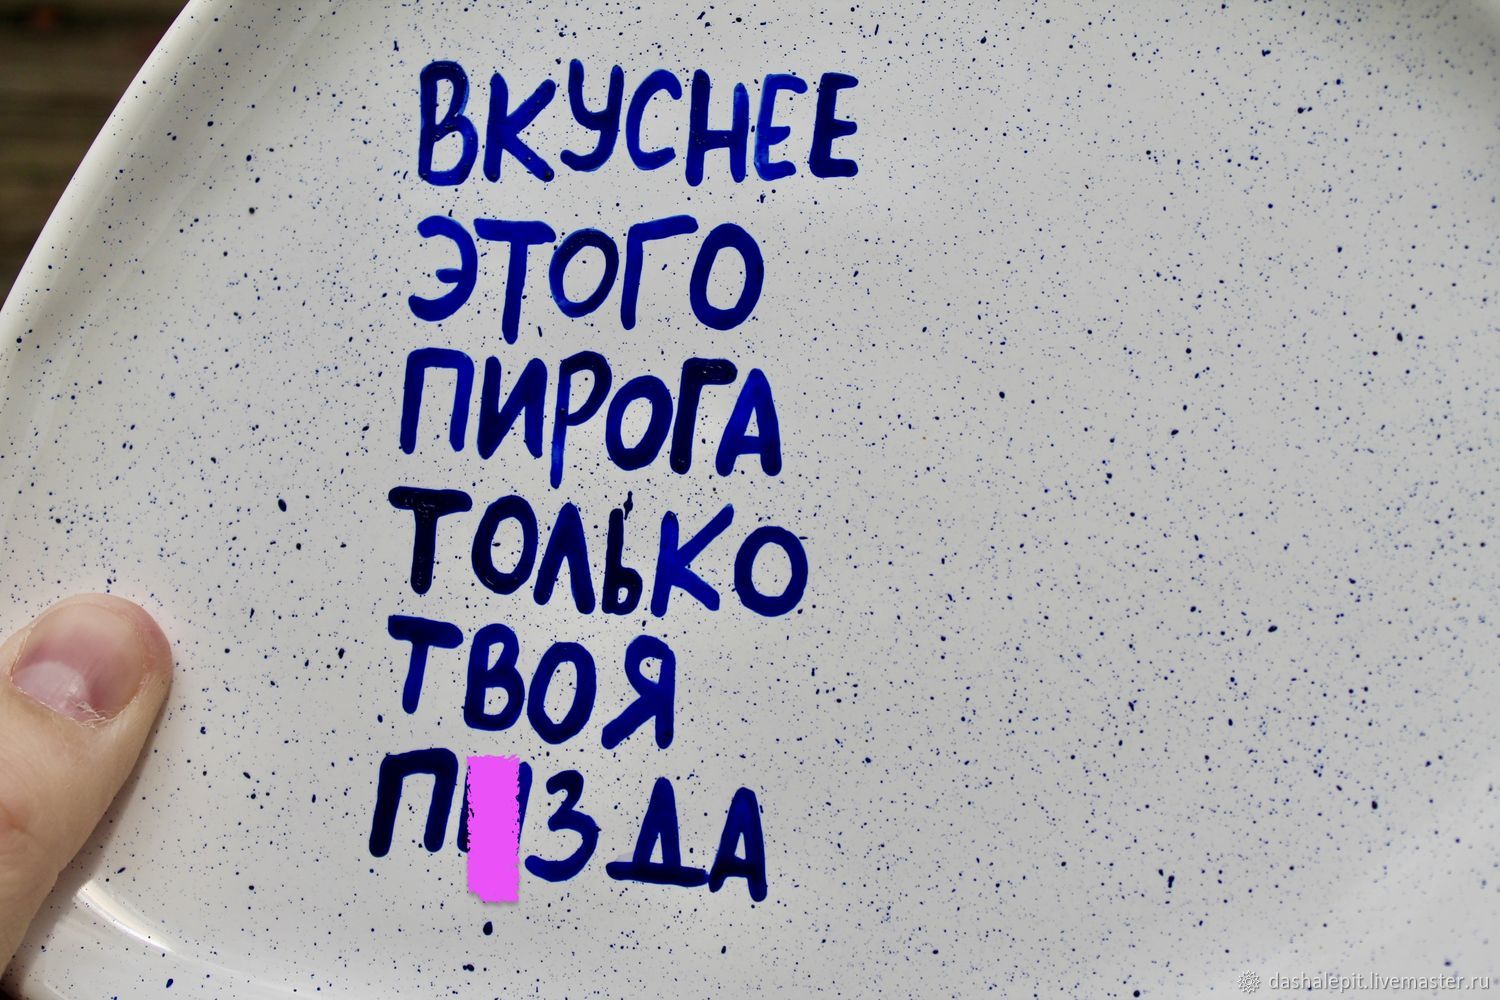 ВКУСНЕЕ
ЭТОГО
ПИРОГА
ТОЛЬКО
ТВОЯ
dashalepit.livemaster.ru